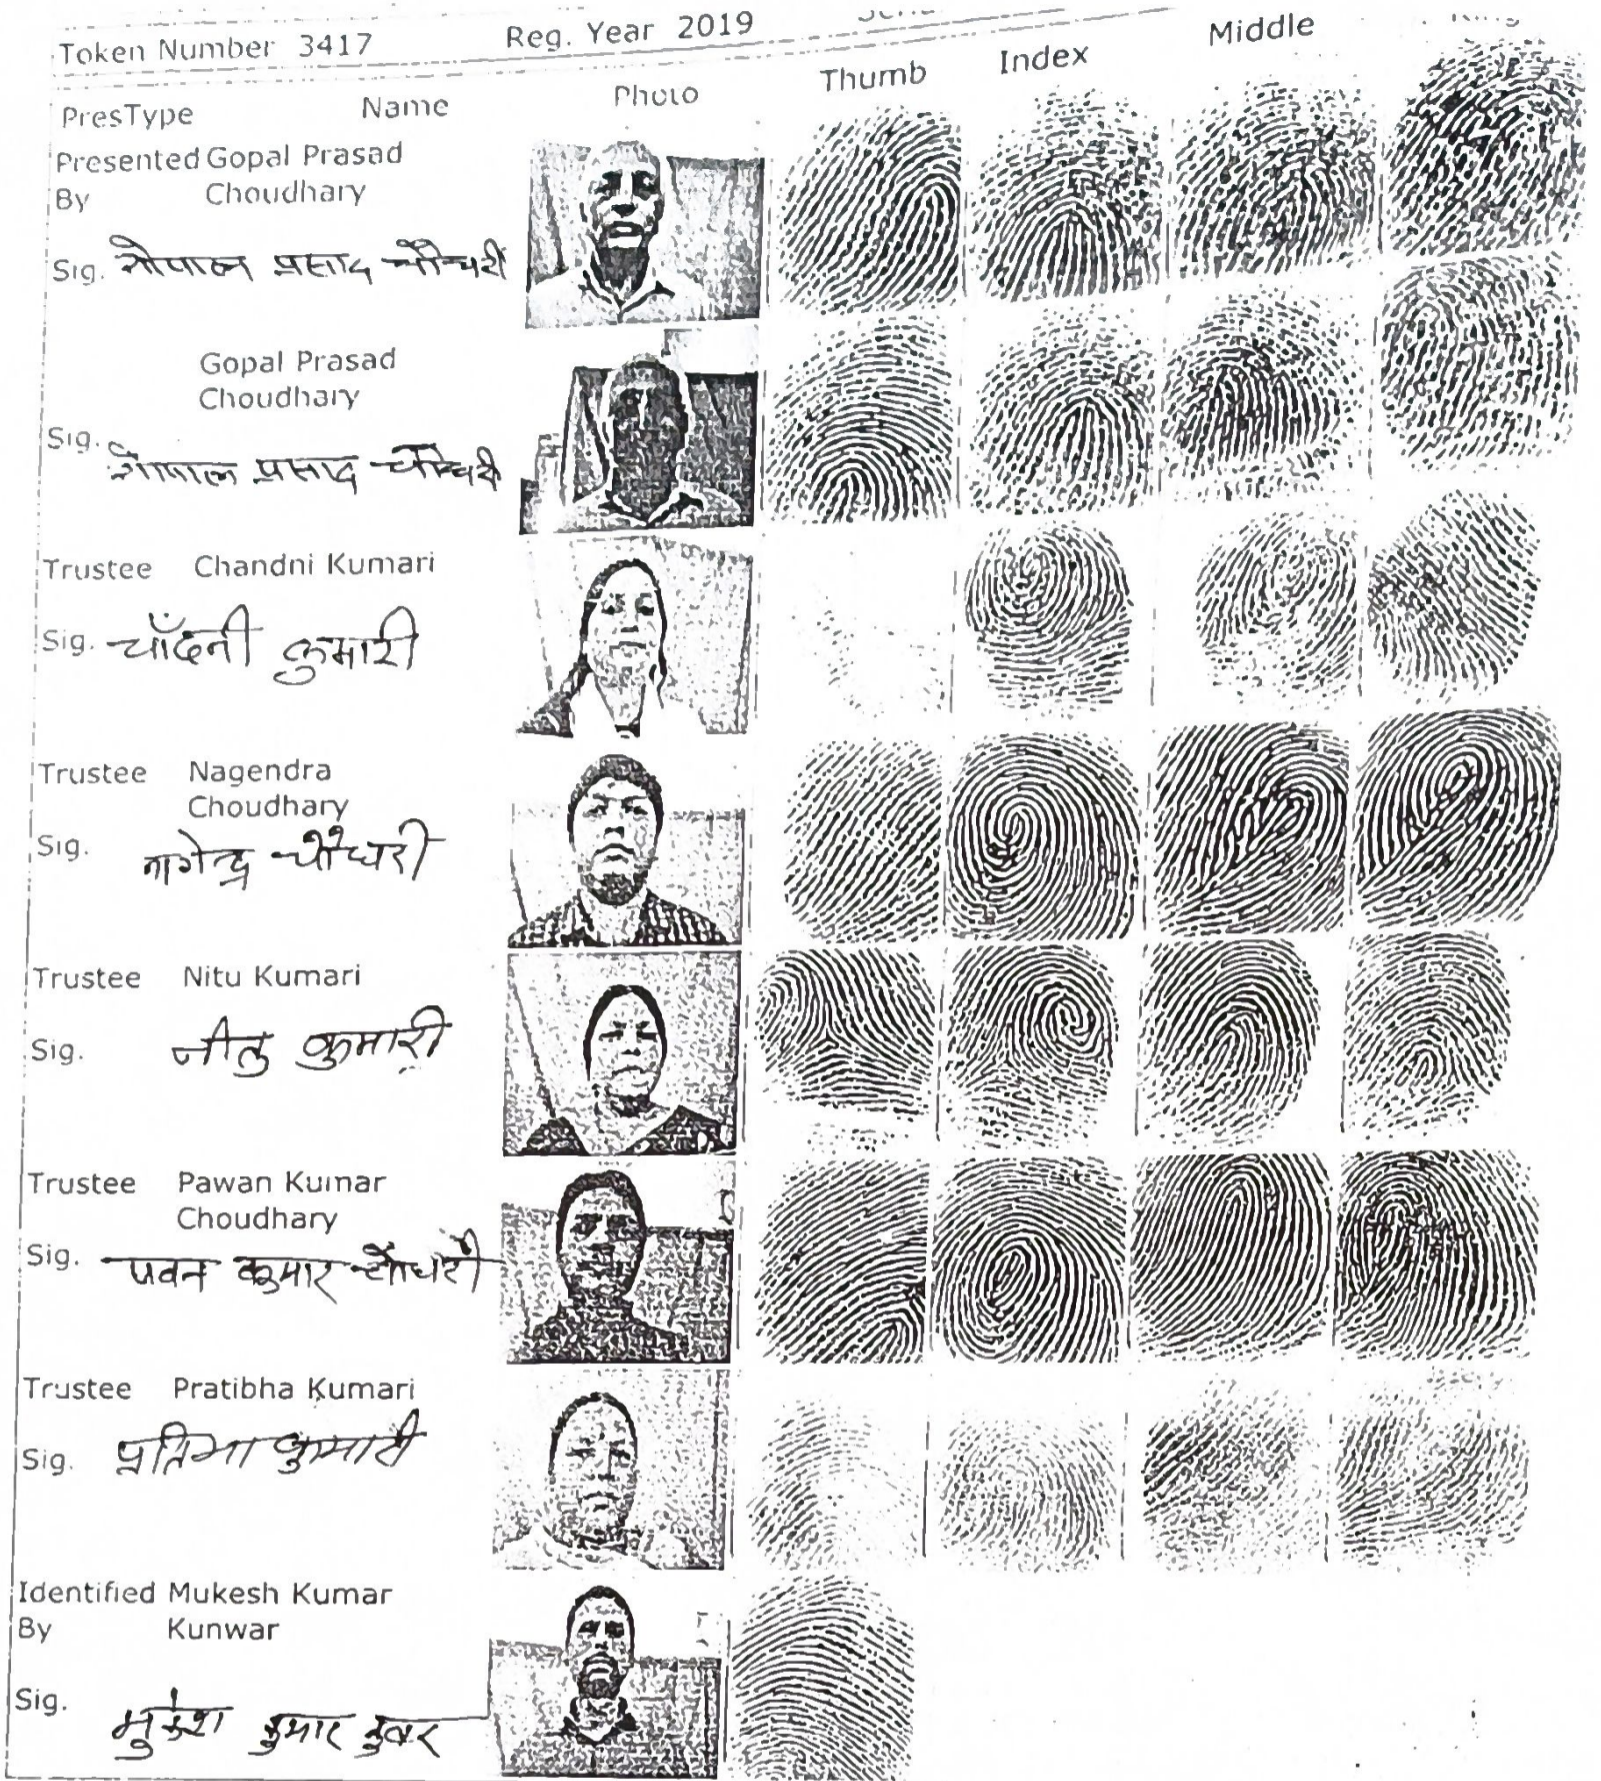 Token Number 3417 Reg. Year 2019
PresType Name Photo Thumb Index Middle
Presented Gopal Prasad
By Choudhary
Sig. गोपाल प्रसाद चौधरी
Gopal Prasad
Choudhary
Sig. गोपाल प्रसाद चौधरी
Trustee Chandni Kumari
Sig. चाँदनी कुमारी
Trustee Nagendra
Choudhary
Sig. नागेन्द्र चौधरी
Trustee Nitu Kumari
Sig. नीतु कुमारी
Trustee Pawan Kumar
Choudhary
Sig. पवन कुमार चौधरी
Trustee Pratibha Kumari
Sig. प्रतिभा कुमारी
Identified Mukesh Kumar
By Kunwar
Sig. मुकेश कुमार कुवर